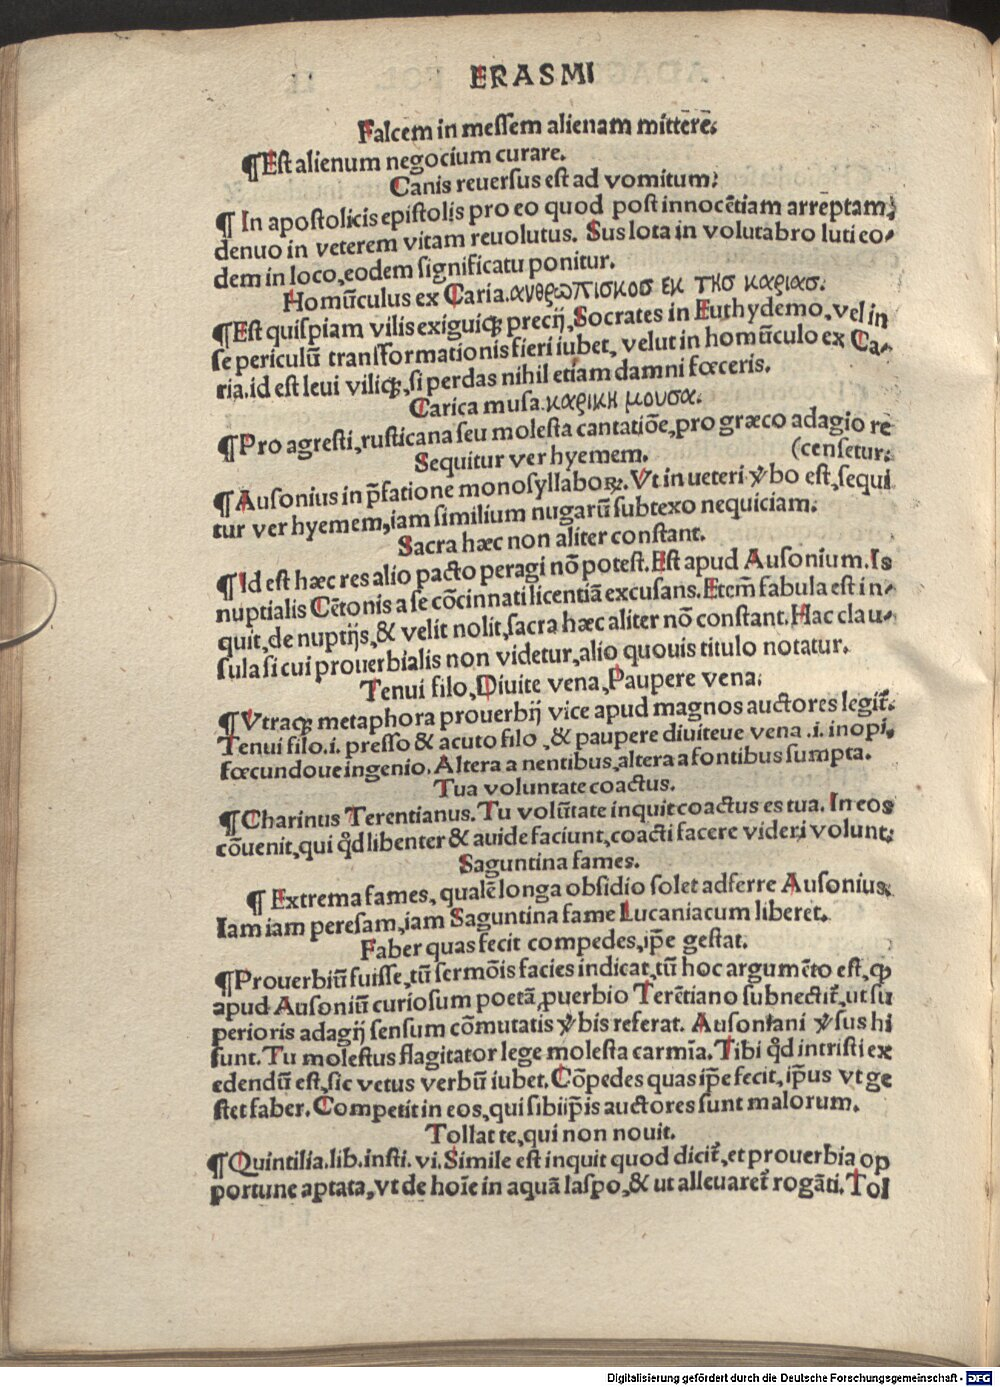 ERASMI
Falcem in messem alienam mittere.
¶Est alienum negocium curare.
Canis reuersus est ad vomitum.
¶ In apostolicis epistolis pro eo quod post innocētiam arreptam,
denuo in veterem vitam reuolutus. Sus lota in volutabro luti eo-
dem in loco, eodem significatu ponitur.
Homūculus ex Caria. ανθρωπισκοσ εκ τησ καριασ.
¶Est quispiam vilis exiguiqꝫ precij, Socrates in Euthydemo, vel in
se periculū transformationis fieri iubet, velut in homūculo ex Ca-
ria. id est leui viliqꝫ, si perdas nihil etiam damni fœceris.
Carica musa. καρικη μουσα.
¶Pro agresti, rusticana seu molesta cantatiōe, pro græco adagio re
Sequitur ver hyemem. (censetur.
¶Ausonius in p̄fatione monosyllaboꝝ. Vt in ueteri v̓bo est, sequi
tur ver hyemem, iam similium nugarū subtexo nequiciam.
Sacra hæc non aliter constant.
¶Id est hæc res alio pacto peragi nō potest. Est apud Ausonium. Is
nuptialis Cētonis a se cōcinnati licentiā excusans. Etem̄ fabula est in-
quit, de nuptijs, & velit nolit, sacra hæc aliter nō constant. Hac clau-
sula si cui prouerbialis non videtur, alio quouis titulo notatur.
Tenui filo, Diuite vena, Paupere vena.
¶Vtraqꝫ metaphora prouerbij vice apud magnos auctores legit᷑.
Tenui filo .i. presso & acuto filo, & paupere diuiteue vena .i. inopi,
fœcundoue ingenio. Altera a nentibus, altera a fontibus sumpta.
Tua voluntate coactus.
¶Charinus Terentianus. Tu volūtate inquit coactus es tua. In eos
cōuenit, qui qd̄ libenter & auide faciunt, coacti facere videri volunt.
Saguntina fames.
¶ Extrema fames, qualē longa obsidio solet adferre Ausonius.
Iam iam peresam, iam Saguntina fame Lucaniacum liberet.
Faber quas fecit compedes, ip̄e gestat.
¶Prouerbiū fuisse, tū sermōis facies indicat, tū hoc argumēto est, ꝙ
apud Ausoniū curiosum poetā ꝓuerbio Terētiano subnectit᷑, ut su
perioris adagij sensum cōmutatis v̓bis referat. Ausoniani v̓sus hi
sunt. Tu molestus flagitator lege molesta carmīa. Tibi qd̄ intristi ex
edendū est, sic vetus verbū iubet. Cōpedes quas ip̄e fecit, ip̄us vt ge
stet faber. Competit in eos, qui sibiip̄is auctores sunt malorum.
Tollat te, qui non nouit.
¶Quintilia. lib. insti. vi. Simile est inquit quod dicit᷑, et prouerbia op
portune aptata, vt de hoīe in aquā laspo, & ut alleuaret᷑ rogāti. Tol
Digitalisierung gefördert durch die Deutsche Forschungsgemeinschaft - DFG